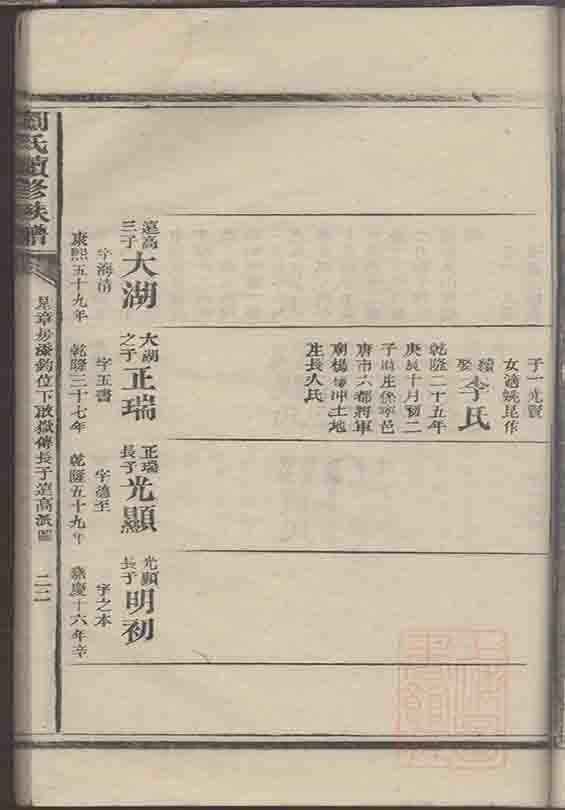 子一光賢
女適姚昆作
續娶
李氏
乾隆二十五年
庚辰十月初二
子時生係寧邑
唐市六都將軍
廟楊
冲土地
生長人氏
蓮高三子
大湖
字海清
康熙五十九年
大湖之子
正瑞
字玉書
乾隆三十七年
正瑞長子
光顯
字德至
乾隆五十九年
光顯長子
明初
字之本
嘉慶十六年辛
氏續修族譜
房添釣位下啟嶽傳長子蓮高派圖
二二